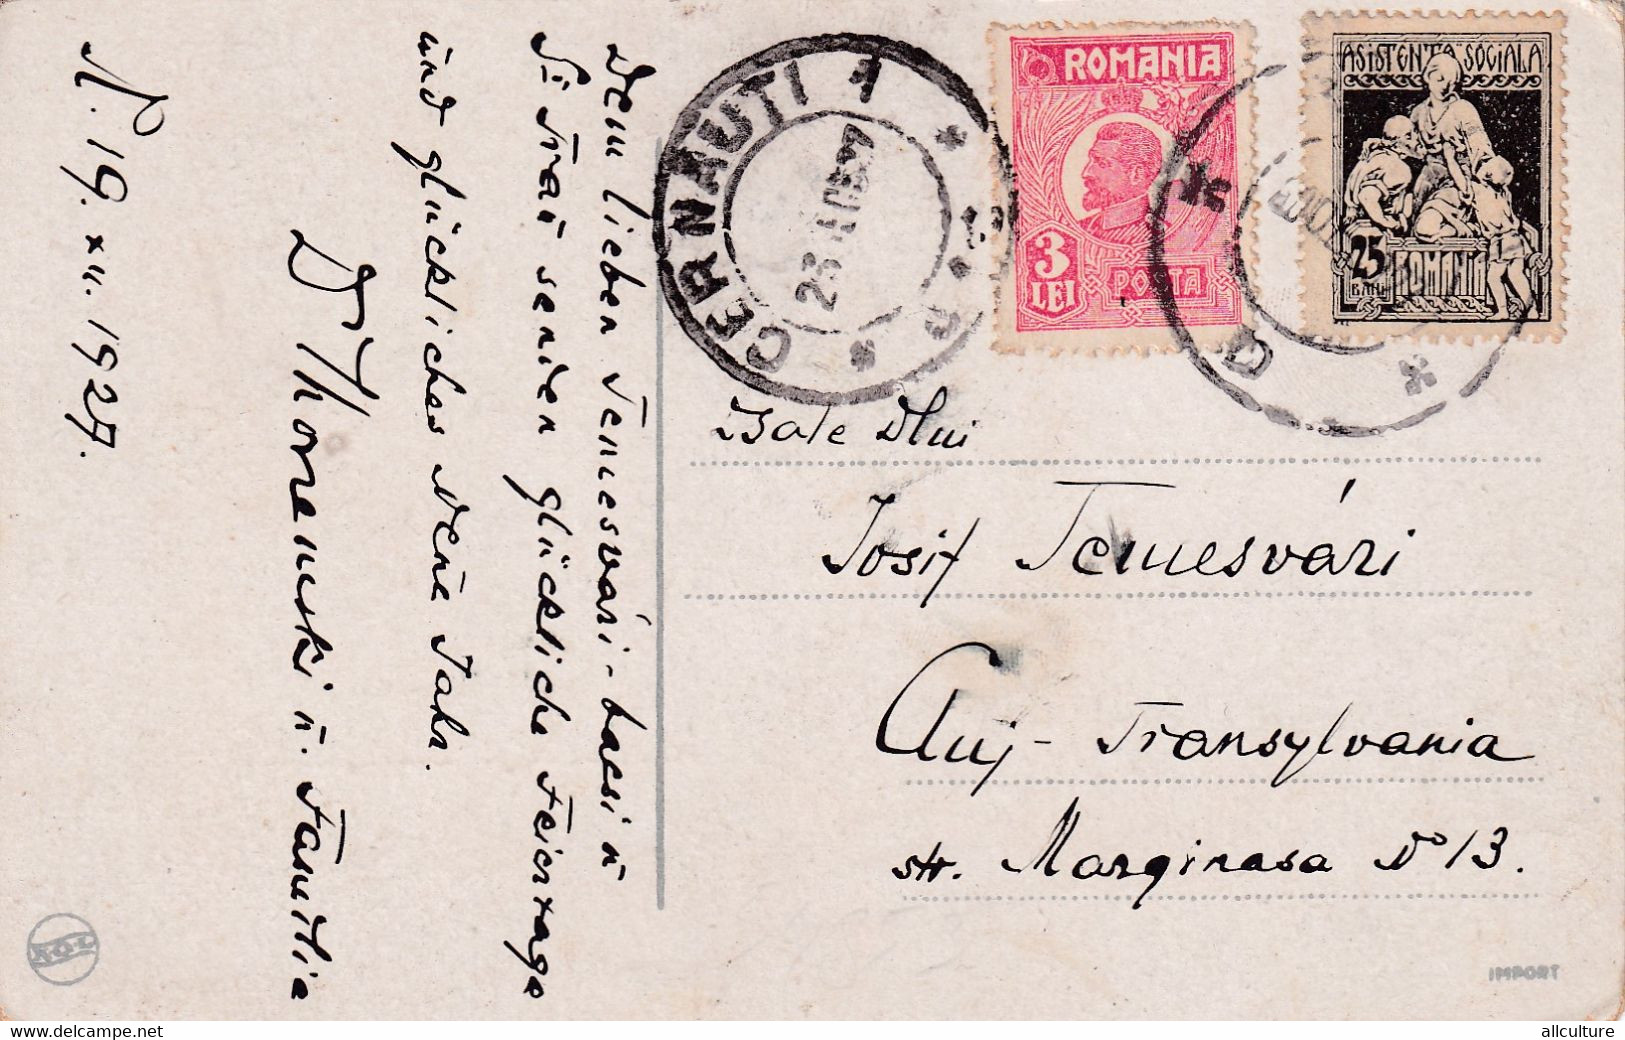 Dem lieben Temesvári-bacsi u
Fraŭ senden glückliche Feiertage
und glückliches Neŭe Jahr.
Dr Thoranuski ŭ. Familia
19. XII. 1927.
CERNAUTI 1
23
ROMANIA
3
LEI
POSTA
ASISTENTA SOCIALA
25
BANI
ROMANIA
Dlui
Iosif Temesvári
Cluj - Transylvania
str. Marginasa No 13.
IMPORT
allculture